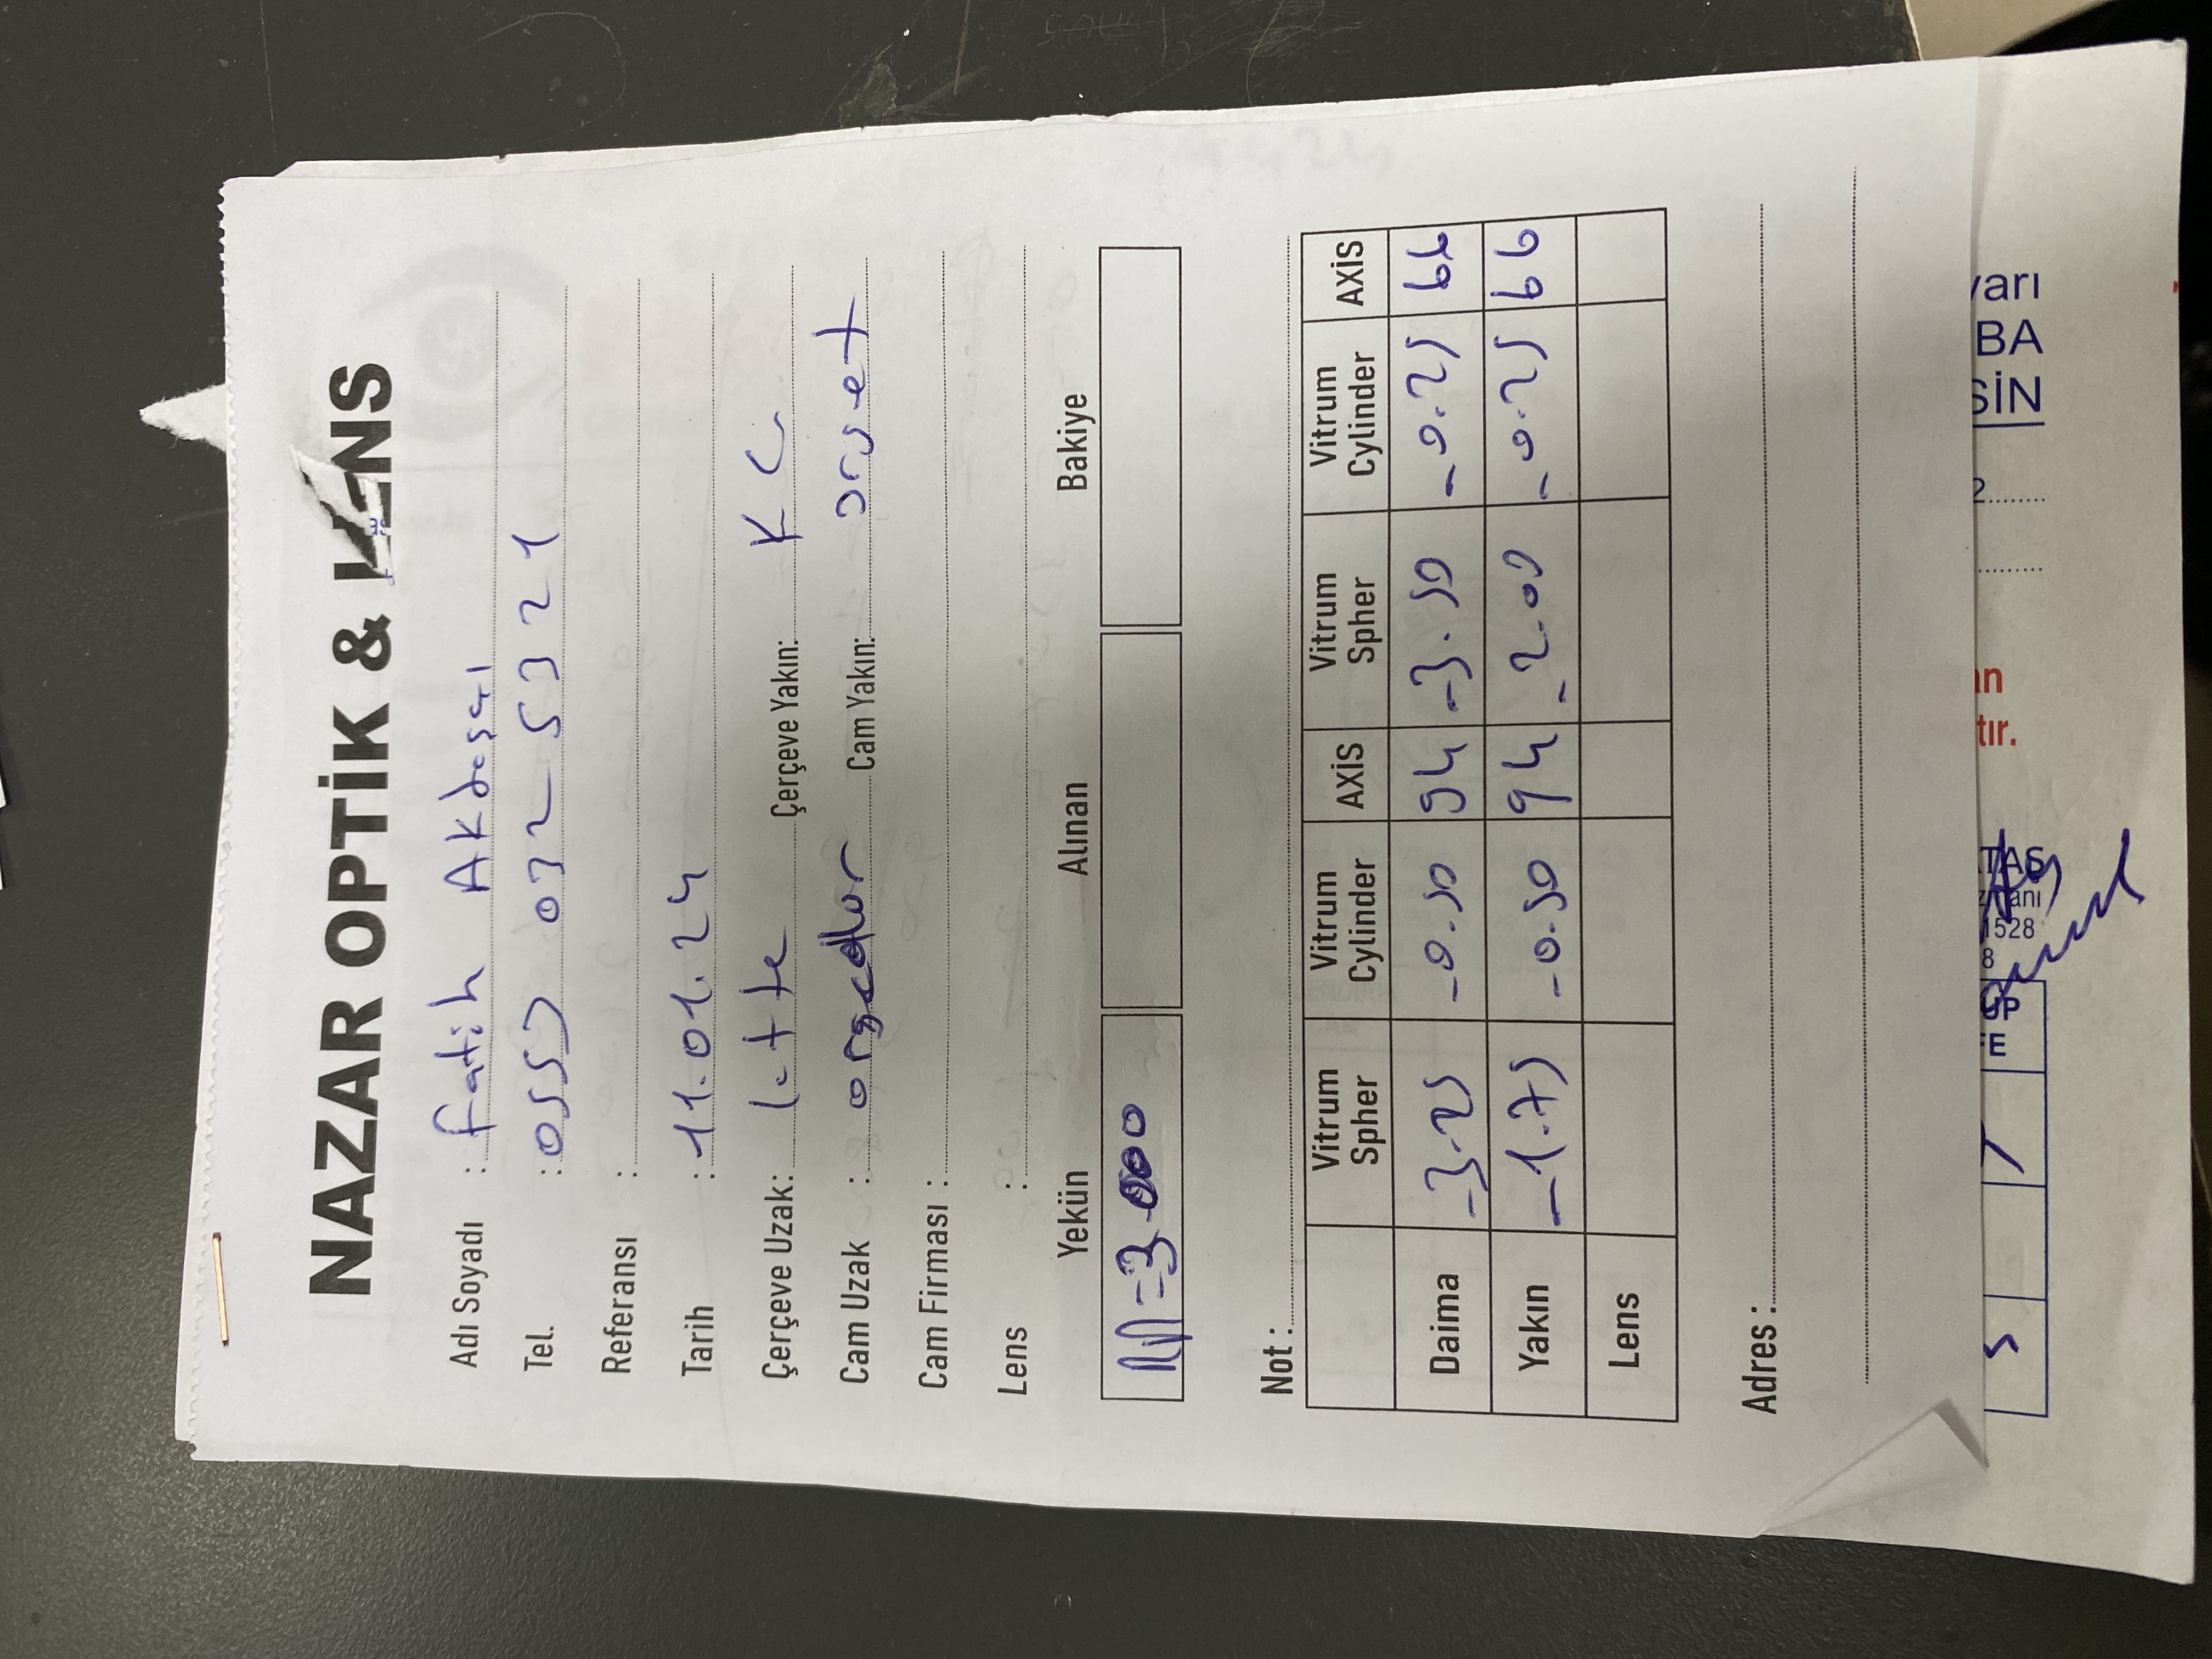 NAZAR OPTİK & LENS
Adı Soyadı : Fatih
Tel. : 0553 032 5321
Referansı :
Tarih : 11.01.24
Çerçeve Uzak: Çerçeve Yakın:
Cam Uzak : Cam Yakın:
Cam Firması :
Lens :
Yekün Alınan Bakiye
=3.000
Not :
Vitrum Spher Vitrum Cylinder AXİS Vitrum Spher Vitrum Cylinder AXİS
Daima -3.25 -0.50 94 -3.50 -0.25 66
Yakın -1.75 -0.50 94 -2.00 -0.25 66
Lens
Adres :
BA
SİN
tır.